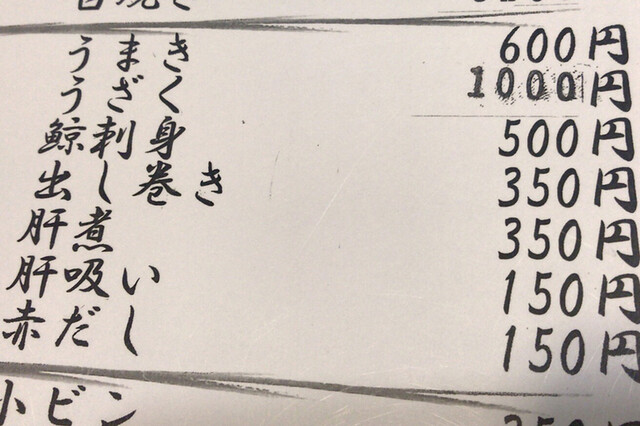 うまき 600円
うざく 1000円
鯨刺身 500円
出し巻き 350円
肝煮 350円
肝吸い 150円
赤だし 150円
小ビン